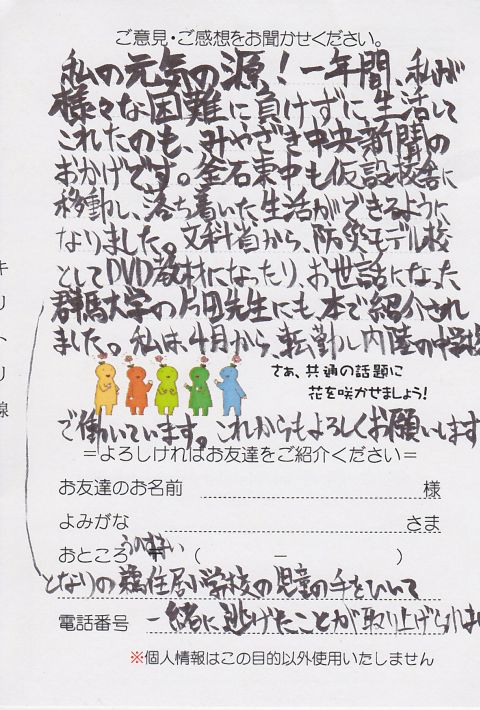 ご意見・ご感想をお聞かせください。
私の元気の源！一年間、私が
様々な困難に負けずに生活して
これたのも、みやざき中央新聞の
おかげです。釜石東中も仮設校舎に
移動し、落ち着いた生活ができるように
なりました。文科省から、防災モデル校
としてDVD教材になったり、お世話になった
群馬大学の片田先生にも、本で紹介され
ました。私は、4月から、転勤し内陸の中学校
さぁ、共通の話題に
花を咲かせましょう！
で働いています。これからもよろしくお願いします
＝よろしければお友達をご紹介ください＝
お友達のお名前 様
よみがな さま
おところ 〒（ － ）
うのすまい
となりの鵜住居小学校の児童の手をひいて
電話番号 一緒に逃げたことが取り上げられま
※個人情報はこの目的以外使用いたしません
キリトリ線